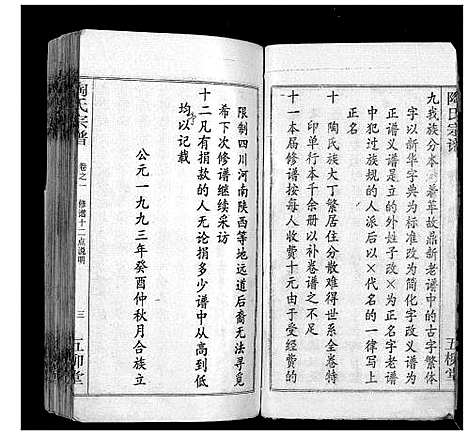 陶氏宗谱
五柳堂
九我族分本着革故鼎新老谱中的古字繁体
字以新华字典为标准改为简化字改义谱为
正谱义谱是立的外姓子改×为正名字老谱
中犯过族规的人派后以×代名的一律写上
正名
十 陶氏族大丁繁居住分散难得世系全卷特
印单行本千余册以补卷谱之不足
十一本届修谱按每人收费十元由于受经费的
限制四川河南陕西等地远道后裔无法寻觅
希下次修谱继续采访
十二凡有捐款的人无论捐多少谱中从高到低
均以记载
公元一九九三年癸酉仲秋月合族立
陶氏宗谱
卷之一 修谱十二点说明
三
五柳堂